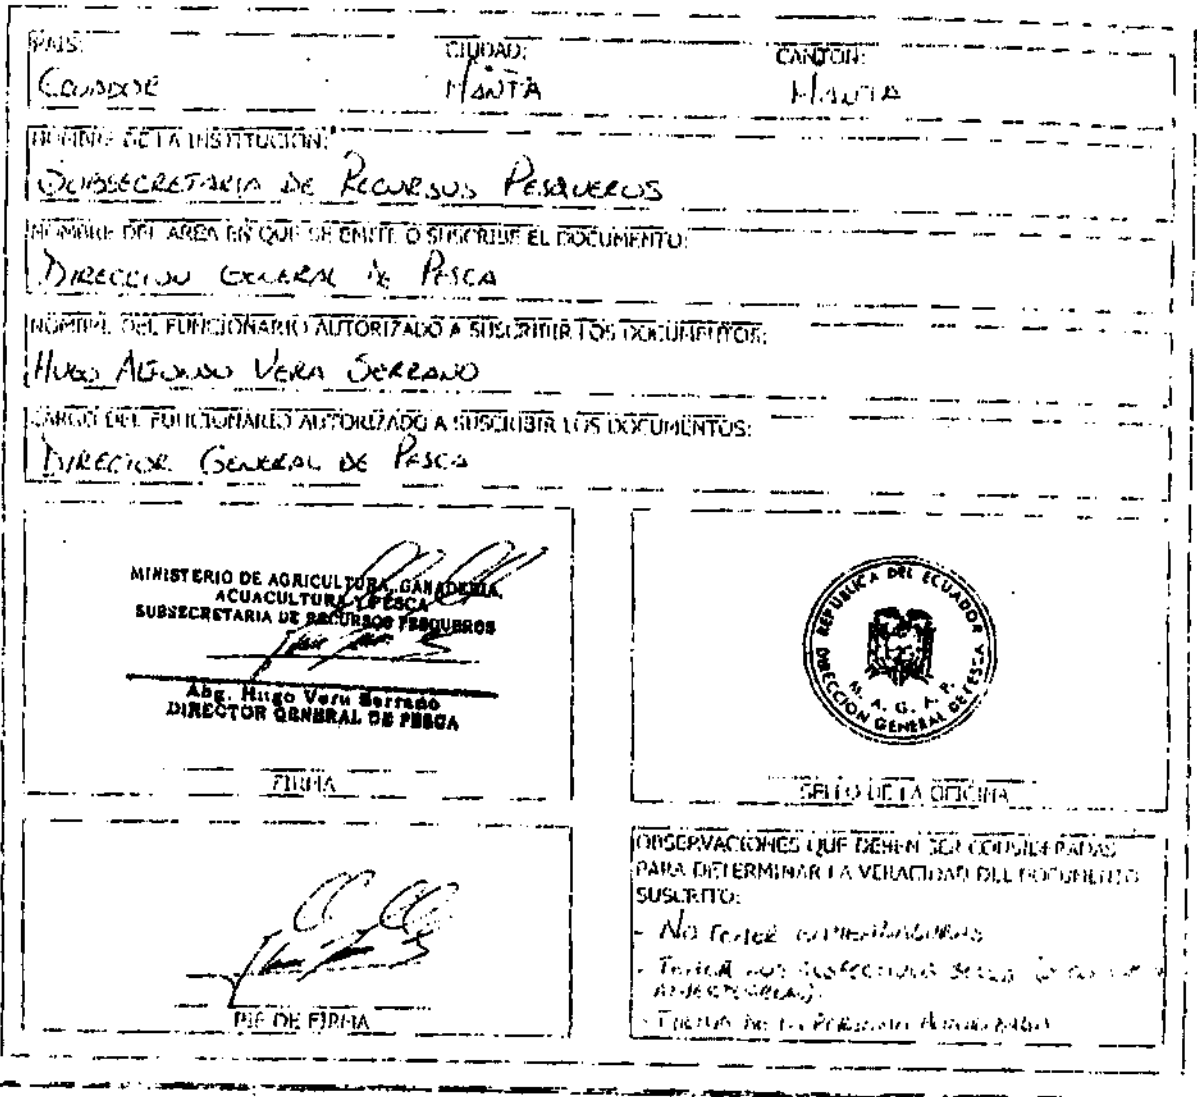 PAIS: CIUDAD: CANTON:
ECUADOR MANTA MANTA
NOMBRE DE LA INSTITUCION:
SUBSECRETARIA DE RECURSOS PESQUEROS
NOMBRE DEL AREA EN QUE SE EMITE O SUSCRIBE EL DOCUMENTO:
DIRECCION GENERAL DE PESCA
NOMBRE DEL FUNCIONARIO AUTORIZADO A SUSCRIBIR LOS DOCUMENTOS:
HUGO ALFONSO VERA SERRANO
CARGO DEL FUNCIONARIO AUTORIZADO A SUSCRIBIR LOS DOCUMENTOS:
DIRECTOR GENERAL DE PESCA
MINISTERIO DE AGRICULTURA, GANADERIA,
ACUACULTURA Y PESCA
SUBSECRETARIA DE RECURSOS PESQUEROS
Abg. Hugo Vera Serrano
DIRECTOR GENERAL DE PESCA
FIRMA
REPUBLICA DEL ECUADOR
M. A. G. A. P.
DIRECCION GENERAL DE PESCA
SELLO DE LA OFICINA
PIE DE FIRMA
OBSERVACIONES QUE DEBEN SER CONSIDERADAS
PARA DETERMINAR LA VERACIDAD DEL DOCUMENTO
SUSCRITO:
- NO TENER
- TENER SUS RESPECTIVOS SELLOS
- FIRMA DE LA PERSONA AUTORIZADA